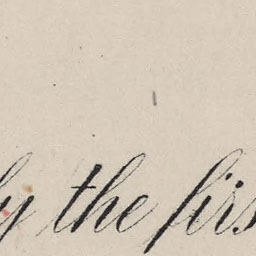 y the firs